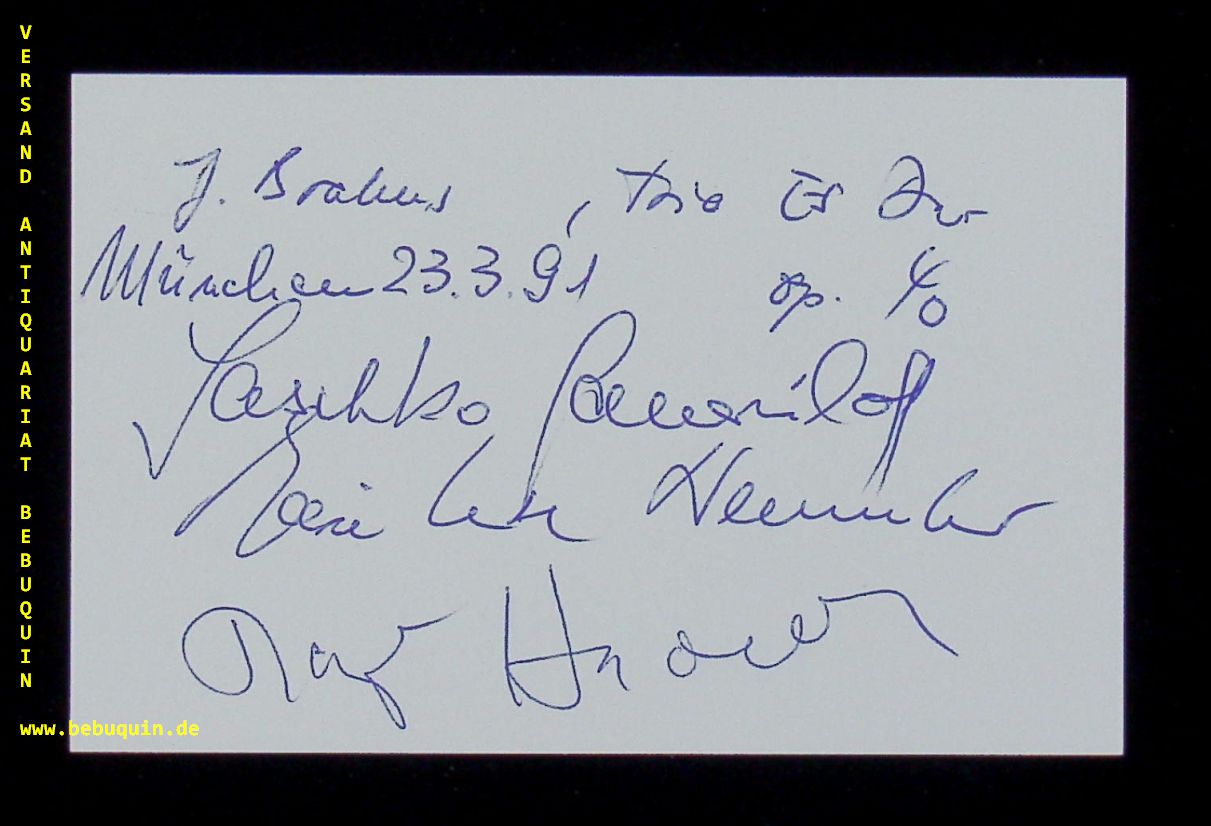 VERSAND ANTIQUARIAT BEBUQUIN
J. Brahms, Trio Es Dur
München 23.3.91 op. 40
Saschko Gawriloff
Marie Luise Neunecker
www.bebuquin.de